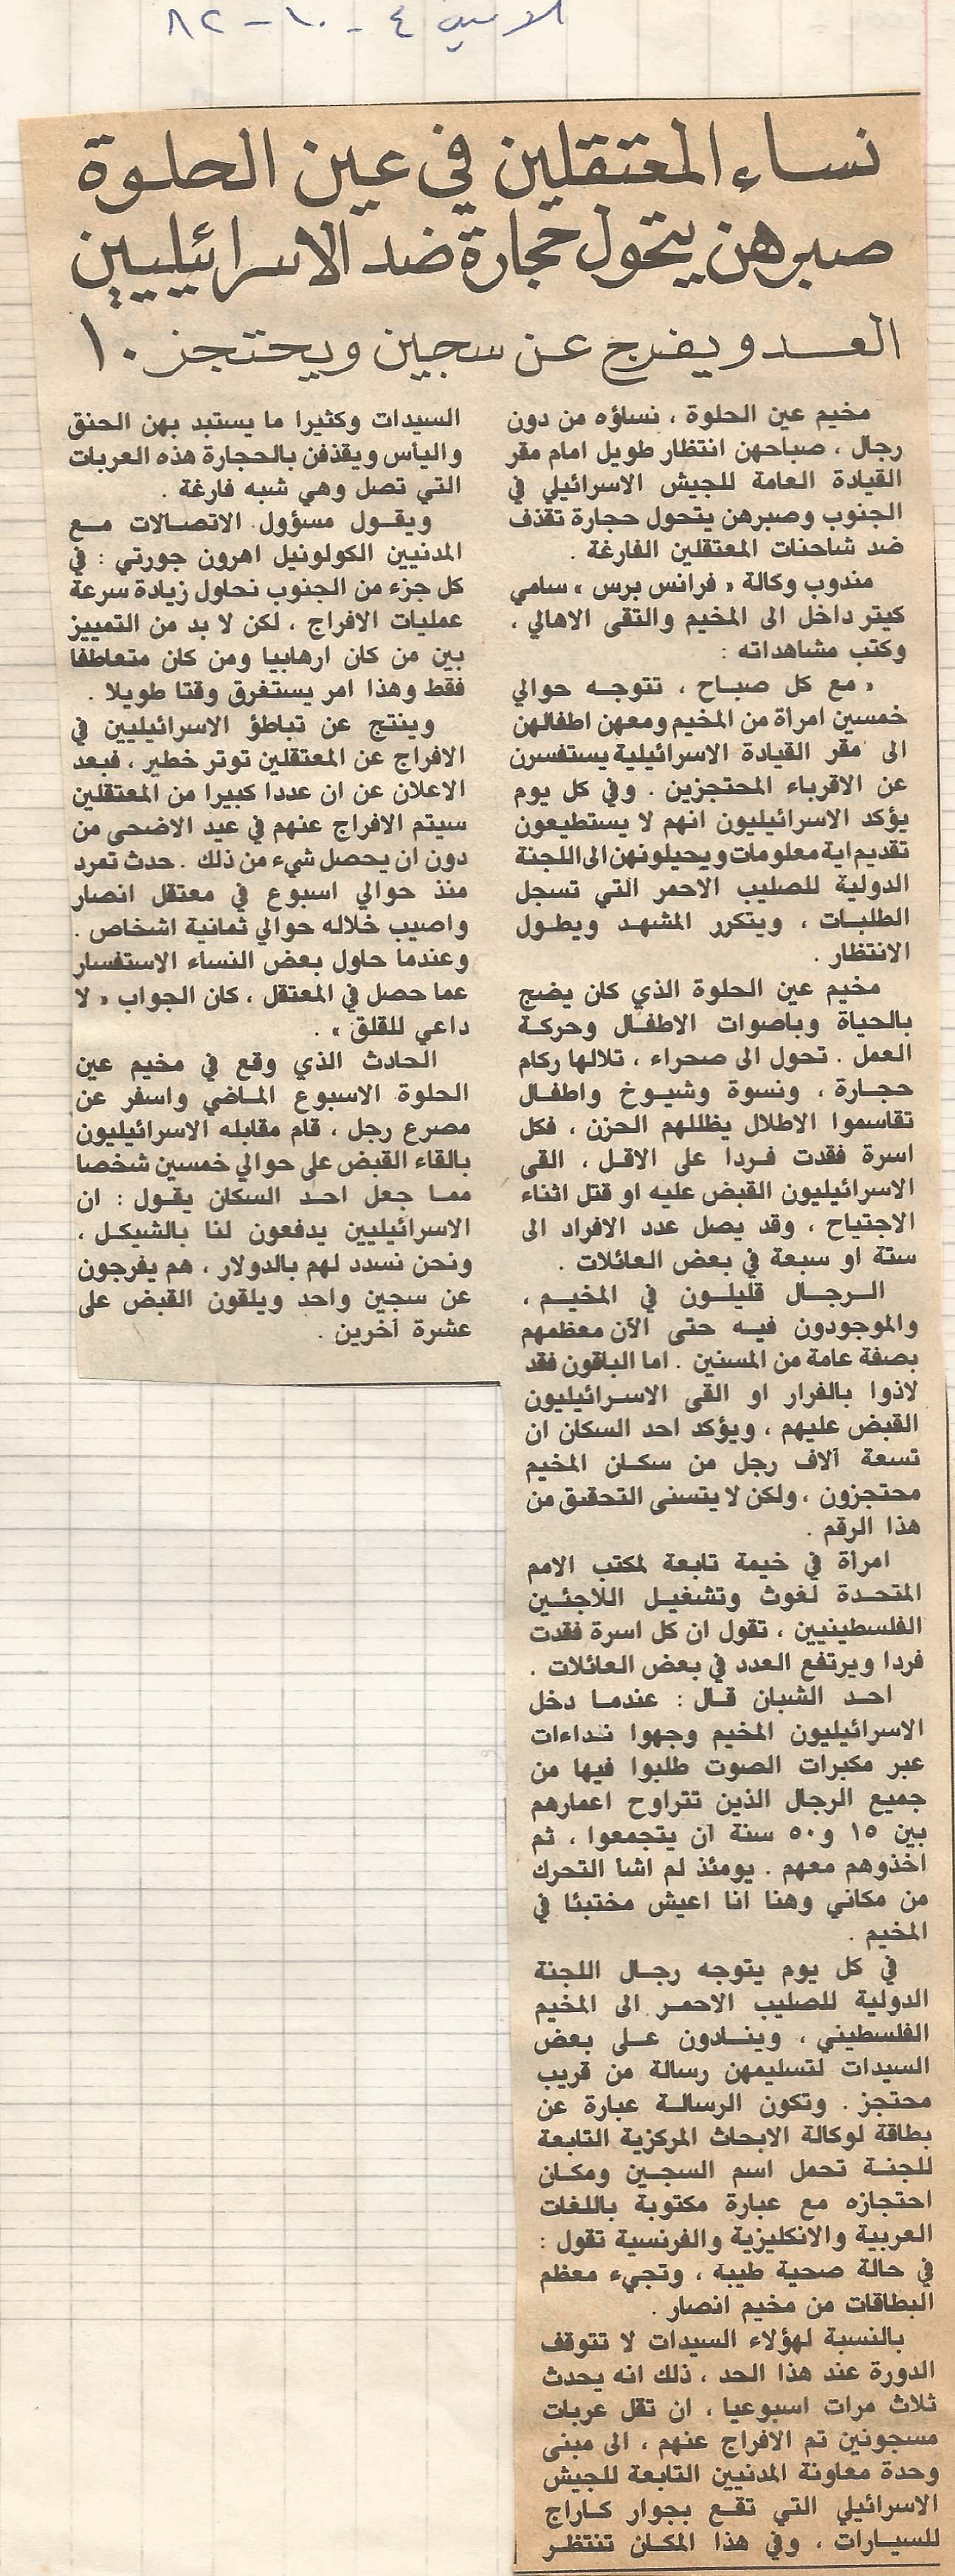 الاثنين ٤ - ١٠ - ٨٢
نساء المعتقلين في عين الحلوة
صبرهن يتحول حجارة ضد الاسرائيليين
العدو يفرج عن سجين ويحتجز ١٠
مخيم عين الحلوة ، نساؤه من دون
رجال ، صباحهن انتظار طويل امام مقر
القيادة العامة للجيش الاسرائيلي في
الجنوب وصبرهن يتحول حجارة تقذف
ضد شاحنات المعتقلين الفارغة .
مندوب وكالة « فرانس برس » سامي
كيتر داخل الى المخيم والتقى الاهالي ،
وكتب مشاهداته :
« مع كل صباح ، تتوجه حوالي
خمسين امرأة من المخيم ومعهن اطفالهن
الى مقر القيادة الاسرائيلية يستفسرن
عن الاقرباء المحتجزين . وفي كل يوم
يؤكد الاسرائيليون انهم لا يستطيعون
تقديم اية معلومات ويحيلونهن الى اللجنة
الدولية للصليب الاحمر التي تسجل
الطلبات ، ويتكرر المشهد ويطول
الانتظار .
مخيم عين الحلوة الذي كان يضج
بالحياة وباصوات الاطفال وحركة
العمل . تحول الى صحراء ، تلالها ركام
حجارة ، ونسوة وشيوخ واطفال
تقاسموا الاطلال يظللهم الحزن ، فكل
اسرة فقدت فردا على الاقل ، القى
الاسرائيليون القبض عليه او قتل اثناء
الاجتياح ، وقد يصل عدد الافراد الى
ستة او سبعة في بعض العائلات .
الرجال قليلون في المخيم ،
والموجودون فيه حتى الآن معظمهم
بصفة عامة من المسنين . اما الباقون فقد
لاذوا بالفرار او القى الاسرائيليون
القبض عليهم ، ويؤكد احد السكان ان
تسعة آلاف رجل من سكان المخيم
محتجزون ، ولكن لا يتسنى التحقق من
هذا الرقم .
امرأة في خيمة تابعة لمكتب الامم
المتحدة لغوث وتشغيل اللاجئين
الفلسطينيين ، تقول ان كل اسرة فقدت
فردا ويرتفع العدد في بعض العائلات .
احد الشبان قال : عندما دخل
الاسرائيليون المخيم وجهوا نداءات
عبر مكبرات الصوت طلبوا فيها من
جميع الرجال الذين تتراوح اعمارهم
بين ١٥ و٥٠ سنة ان يتجمعوا ، ثم
اخذوهم معهم . يومئذ لم اشأ التحرك
من مكاني وهنا انا اعيش مختبئا في
المخيم .
في كل يوم يتوجه رجال اللجنة
الدولية للصليب الاحمر الى المخيم
الفلسطيني ، وينادون على بعض
السيدات لتسليمهن رسالة من قريب
محتجز . وتكون الرسالة عبارة عن
بطاقة لوكالة الابحاث المركزية التابعة
للجنة تحمل اسم السجين ومكان
احتجازه مع عبارة مكتوبة باللغات
العربية والانكليزية والفرنسية تقول :
في حالة صحية طيبة ، وتجيء معظم
البطاقات من مخيم انصار .
بالنسبة لهؤلاء السيدات لا تتوقف
الدورة عند هذا الحد ، ذلك انه يحدث
ثلاث مرات اسبوعيا ، ان تقل عربات
مسجونين تم الافراج عنهم ، الى مبنى
وحدة معاونة المدنيين التابعة للجيش
الاسرائيلي التي تقع بجوار كاراج
للسيارات ، وفي هذا المكان تنتظر
السيدات وكثيرا ما يستبد بهن الحنق
واليأس ويقذفن بالحجارة هذه العربات
التي تصل وهي شبه فارغة .
ويقول مسؤول الاتصالات مع
المدنيين الكولونيل اهرون جورتي : في
كل جزء من الجنوب نحاول زيادة سرعة
عمليات الافراج ، لكن لا بد من التمييز
بين من كان ارهابيا ومن كان متعاطفا
فقط وهذا امر يستغرق وقتا طويلا .
وينتج عن تباطؤ الاسرائيليين في
الافراج عن المعتقلين توتر خطير ، فبعد
الاعلان عن ان عددا كبيرا من المعتقلين
سيتم الافراج عنهم في عيد الاضحى من
دون ان يحصل شيء من ذلك . حدث تمرد
منذ حوالي اسبوع في معتقل انصار
واصيب خلاله حوالي ثمانية اشخاص .
وعندما حاول بعض النساء الاستفسار
عما حصل في المعتقل ، كان الجواب « لا
داعي للقلق » .
الحادث الذي وقع في مخيم عين
الحلوة الاسبوع الماضي واسفر عن
مصرع رجل ، قام مقابله الاسرائيليون
بالقاء القبض على حوالي خمسين شخصا
مما جعل احد السكان يقول : ان
الاسرائيليين يدفعون لنا بالشيكل ،
ونحن نسدد لهم بالدولار ، هم يفرجون
عن سجين واحد ويلقون القبض على
عشرة آخرين .